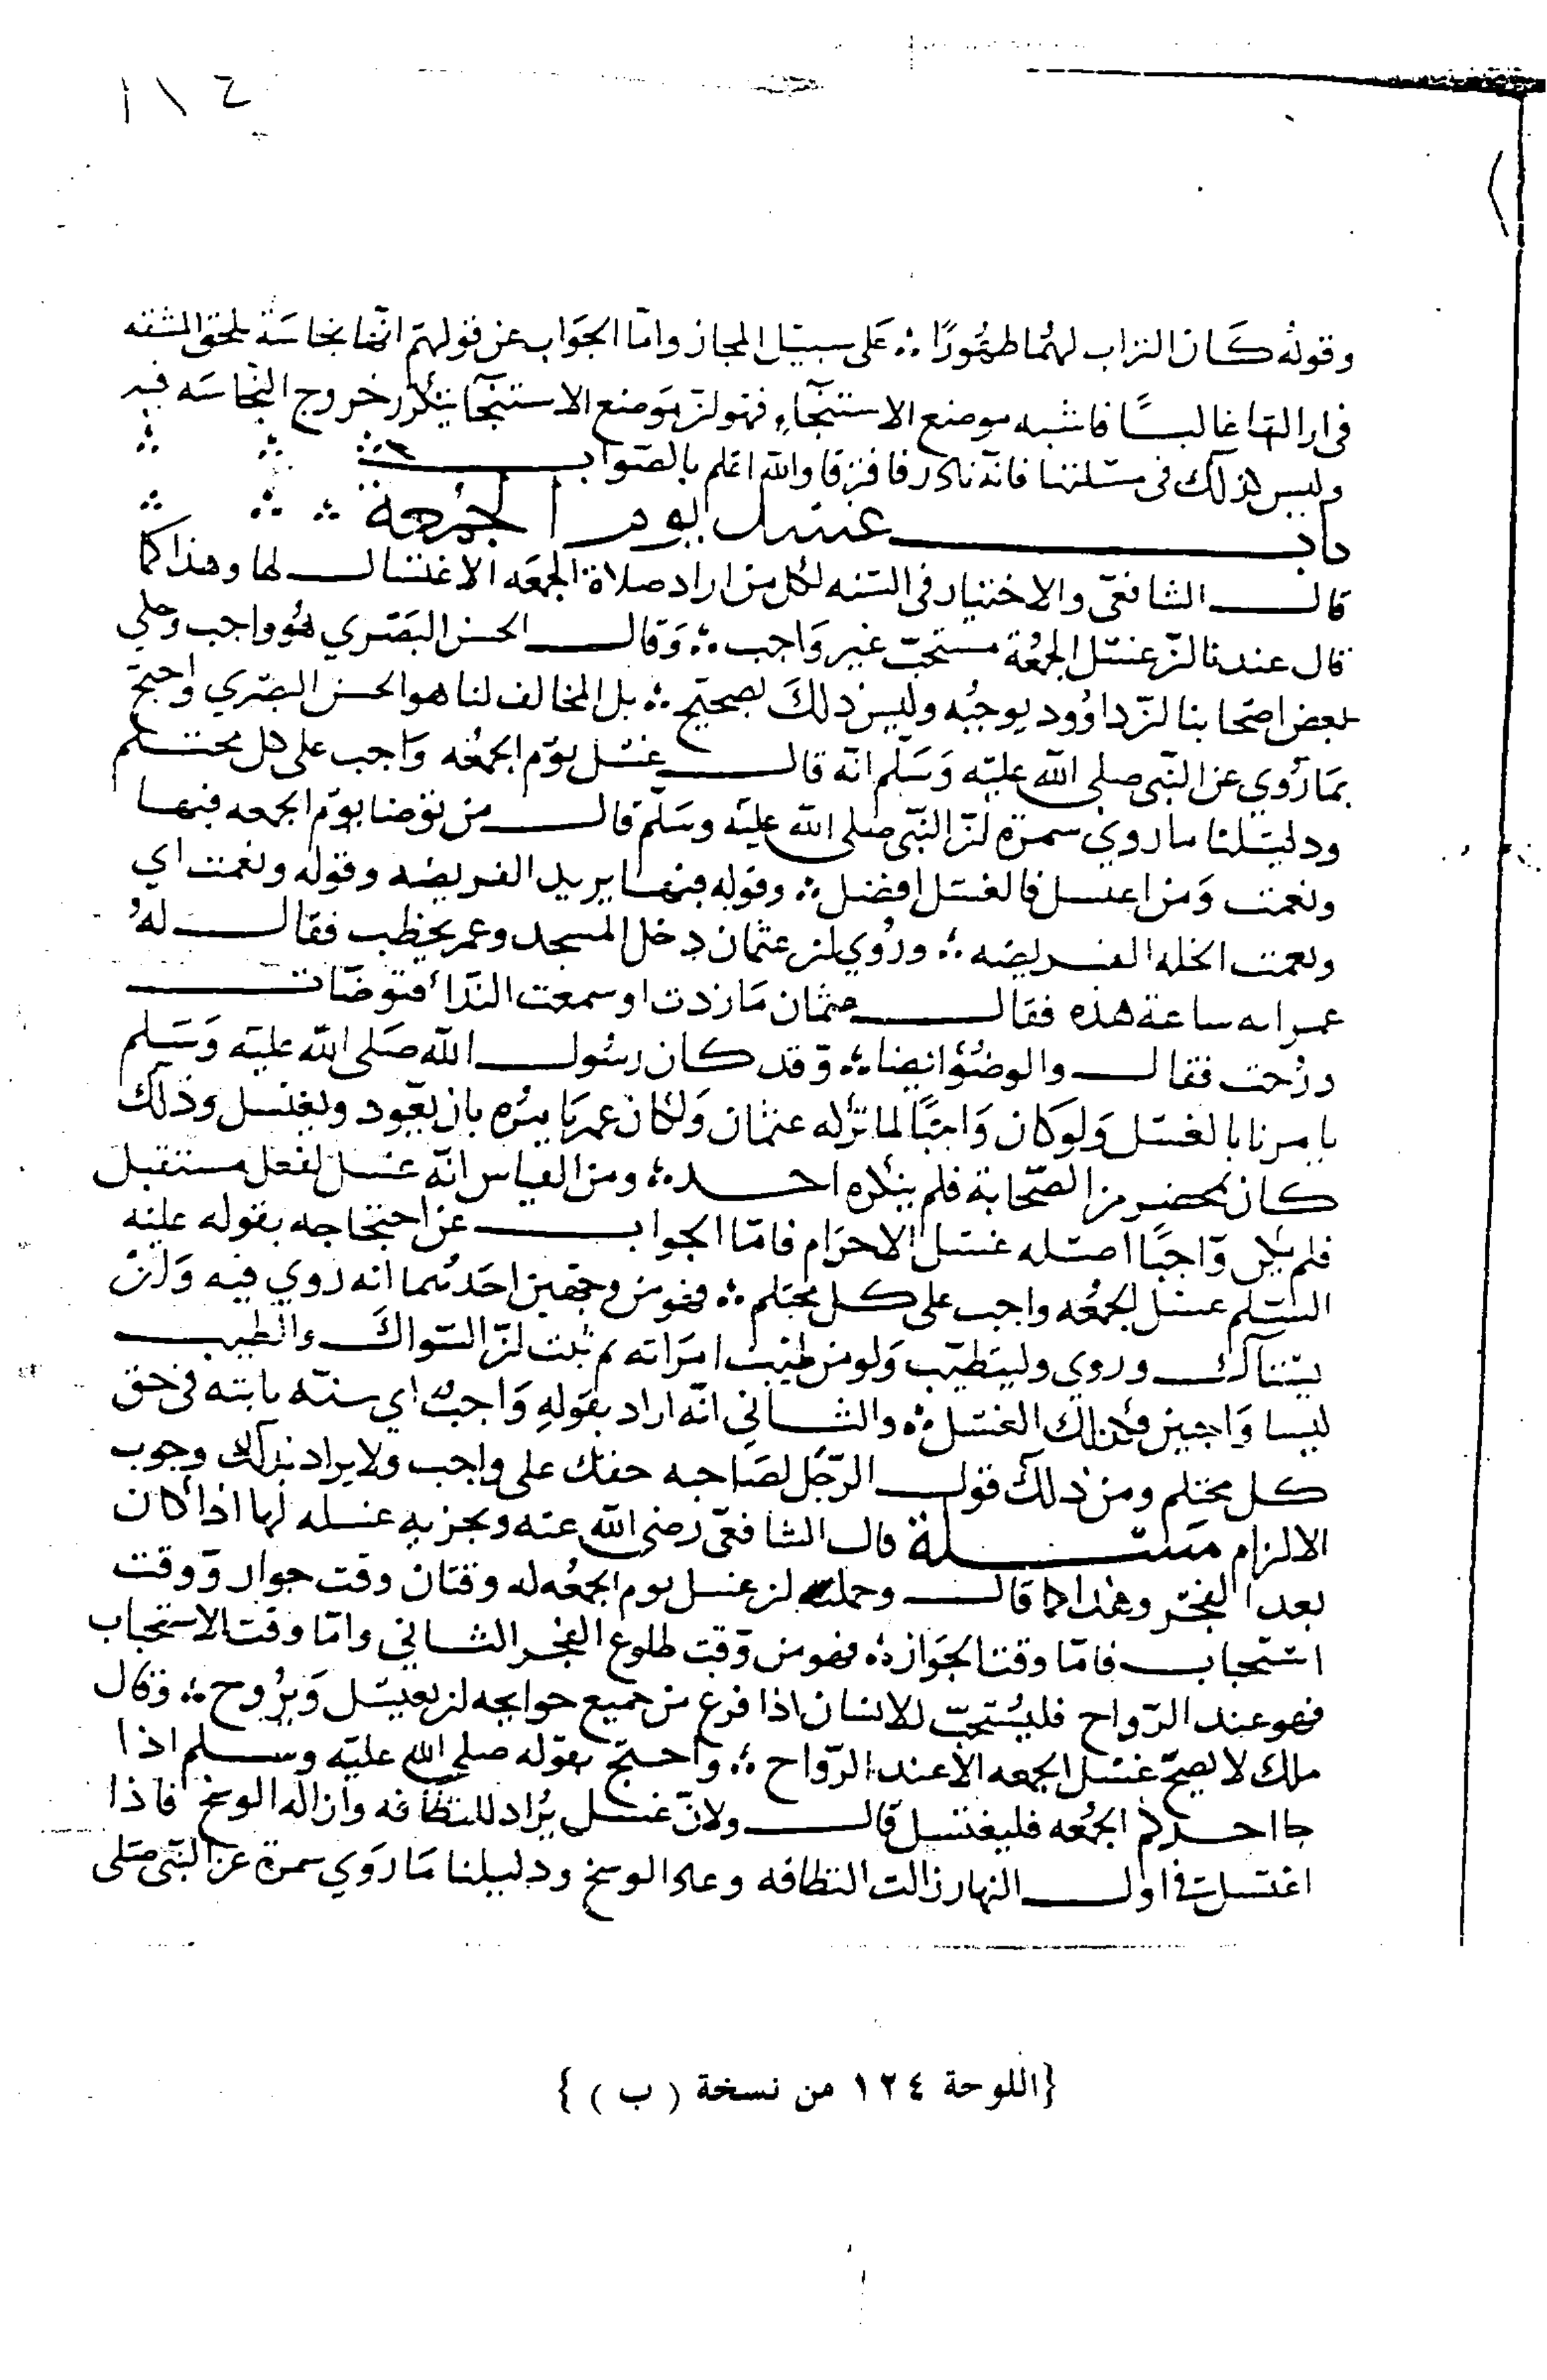 وقوله كان التراب لهما طهورًا ∴ على سبيل المجاز واما الجواب عن قولهم انها نجاسة تلحق المشقه
في ازالتها غالبًا فاشبه موضع الاستنجاء فهو لنّ موضع الاستنجا يتكرر خروج النجاسه فيه
وليس كذلك في مسئلتنا فانه نادر فافترقا والله اعلم بالصواب
باب غسل يوم الجمعة
قال الشافعي والاختيار في السنه لكل من اراد صلاة الجمعه الاغتسال لها وهذا كما
قال عندنا لنّ غسل الجمعة مستحب غير واجب ∴ وقال الحسن البصري هو واجب وحكي
بعض اصحابنا لنّ داوود يوجبه وليس ذلك بصحيح ∴ بل المخالف لنا هو الحسن البصري واحتج
بما روي عن النبي صلى الله عليه وسلم انه قال غسل يوم الجمعه واجب على كل محتلم
ودليلنا ما روي سمرة لنّ النبي صلى الله عليه وسلم قال من توضا يوم الجمعه فبها
ونعمت ومن اغتسل فالغسل افضل ∴ وقوله فبها يريد الفريضه وقوله ونعمت اي
ونعمت الخله الفريضه ∴ وروي لنّ عثمان دخل المسجد وعمر يخطب فقال له
عمر ايه ساعة هذه فقال عثمان ما زدت او سمعت الندا فتوضات
ورحت فقال والوضؤ ايضا ∴ وقد كان رسول الله صلى الله عليه وسلم
يامرنا بالغسل ولو كان واجبًا لما تركه عثمان ولكان عمر يامره بان يعود ويغتسل وذلك
كان بمحضر من الصحابة فلم ينكره احد ∴ ومن القياس انه غسل لفعل مستقبل
فلم يكن واجبًا اصله غسل الاحرام فاما الجواب عن احتجاجه بقوله عليه
السلم غسل الجمعه واجب على كل محتلم ∴ فهو من وجهين احدهما انه روي فيه ولنّ
يستاك وروي وليتطيب ولو من طيب امراته ثم ثبت لنّ السواك والطيب
ليسا واجبين فكذلك الغسل ∴ والثاني انه اراد بقوله واجب اي سنه ثابته في حق
كل محتلم ومن ذلك قول الرجل لصاحبه حقك علي واجب ولا يراد بذلك وجوب
الالزام مسئلة قال الشافعي رضي الله عنه ويجزيه غسله لها اذا كان
بعد الفجر وهذا كما قال وجملته لنّ غسل يوم الجمعه له وقتان وقت جواز ووقت
استحباب فاما وقت الجواز ∴ فهو من وقت طلوع الفجر الثاني واما وقت الاستحباب
فهو عند الرواح فليستحب للانسان اذا فرغ من جميع حوايجه لنّ يغتسل ويروح ∴ وقال
ملك لا يصح غسل الجمعه الا عند الرواح ∴ واحتج بقوله صلى الله عليه وسلم اذا
جا احدكم الجمعه فليغتسل قال ولان غسل يراد للنظافه وازاله الوسخ فاذا
اغتسل في اول النهار زالت النظافه وعاد الوسخ ودليلنا ما روي سمرة عن النبي صلى
{اللوحة ١٢٤ من نسخة ( ب ) }